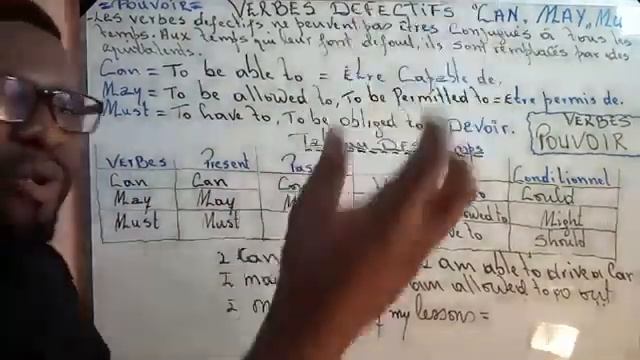 =POUVOIR= VERBES DEFECTIFS CAN, MAY, Mu
-Les verbes defectifs ne peuvent pas êtres conjugués à tous les
temps. Aux temps qui leur font defaut, ils sont remplacés par des
equivalents.
Can = To be able to = Être Capable de.
May = To be allowed to, To be Permitted to = Etre permis de.
Must = To have to, To be obliged to DEVOIR.
VERBES
POUVOIR
VERBES Present Conditionnel
Can Can Could
May May Might
Must Must Should
I Can I am able to drive a Car
I am allowed to go out
I my lessons =